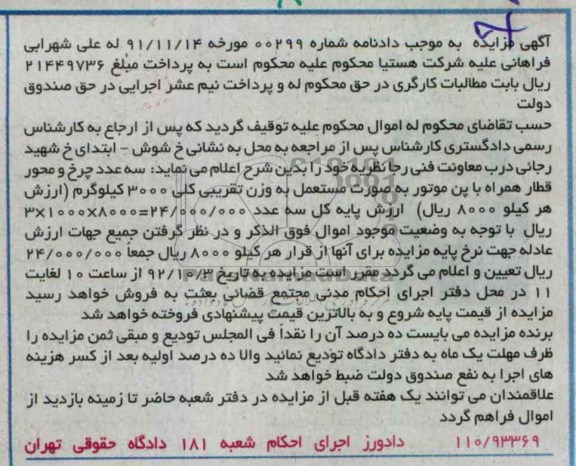 آگهی مزایده به موجب دادنامه شماره ۰۰۲۹۹ مورخه ۹۱/۱۱/۱۴ له علی شهرابی
فراهانی علیه شرکت هستیا محکوم علیه محکوم است به پرداخت مبلغ ۲۱۴۴۹۷۳۶
ریال بابت مطالبات کارگری در حق محکوم له و پرداخت نیم عشر اجرایی در حق صندوق
دولت
حسب تقاضای محکوم له اموال محکوم علیه توقیف گردید که پس از ارجاع به کارشناس
رسمی دادگستری کارشناس پس از مراجعه به محل به نشانی خ شوش - ابتدای خ شهید
رجائی درب معاونت فنی رجا نظریه خود را بدین شرح اعلام می نماید: سه عدد چرخ و محور
قطار همراه با پن موتور به صورت مستعمل به وزن تقریبی کلی ۳۰۰۰ کیلوگرم (ارزش
هر کیلو ۸۰۰۰ ریال) ارزش پایه کل سه عدد ۲۴/۰۰۰/۰۰۰=۸۰۰۰×۱۰۰۰×۳
ریال با توجه به وضعیت موجود اموال فوق الذکر و در نظر گرفتن جمیع جهات ارزش
عادله جهت نرخ پایه مزایده برای آنها از قرار هر کیلو ۸۰۰۰ ریال جمعاً ۲۴/۰۰۰/۰۰۰
ریال تعیین و اعلام می گردد مقرر است مزایده به تاریخ ۹۲/۱۰/۳ از ساعت ۱۰ لغایت
۱۱ در محل دفتر اجرای احکام مدنی مجتمع قضائی بعثت به فروش خواهد رسید
مزایده از قیمت پایه شروع و به بالاترین قیمت پیشنهادی فروخته خواهد شد
برنده مزایده می بایست ده درصد آن را نقداً فی المجلس تودیع و مبقی ثمن مزایده را
ظرف مهلت یک ماه به دفتر دادگاه تودیع نمائید والا ده درصد اولیه بعد از کسر هزینه
های اجرا به نفع صندوق دولت ضبط خواهد شد
علاقمندان می توانند یک هفته قبل از مزایده در دفتر شعبه حاضر تا زمینه بازدید از
اموال فراهم گردد
۱۱۰/۹۳۳۶۹ دادورز اجرای احکام شعبه ۱۸۱ دادگاه حقوقی تهران